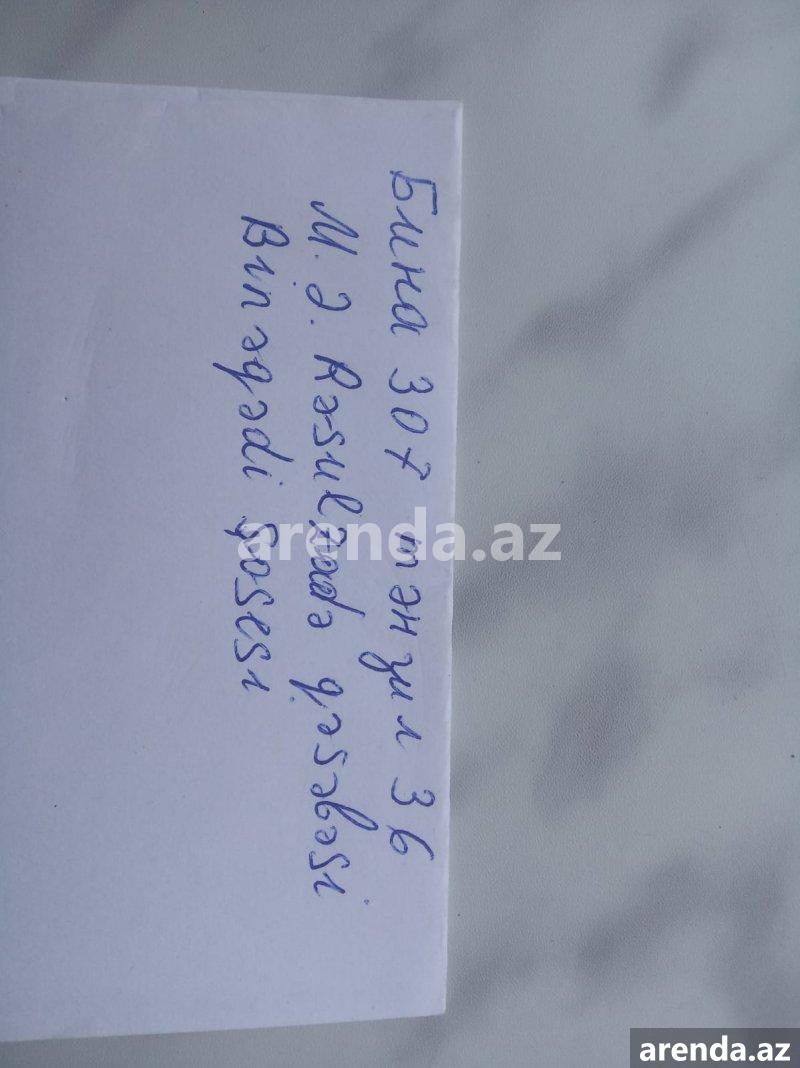 Бина 307 тәнзил 36
M. Ə. Rəsulzadə qəsəbəsi
Binəqədi Şosesi
arenda.az
arenda.az